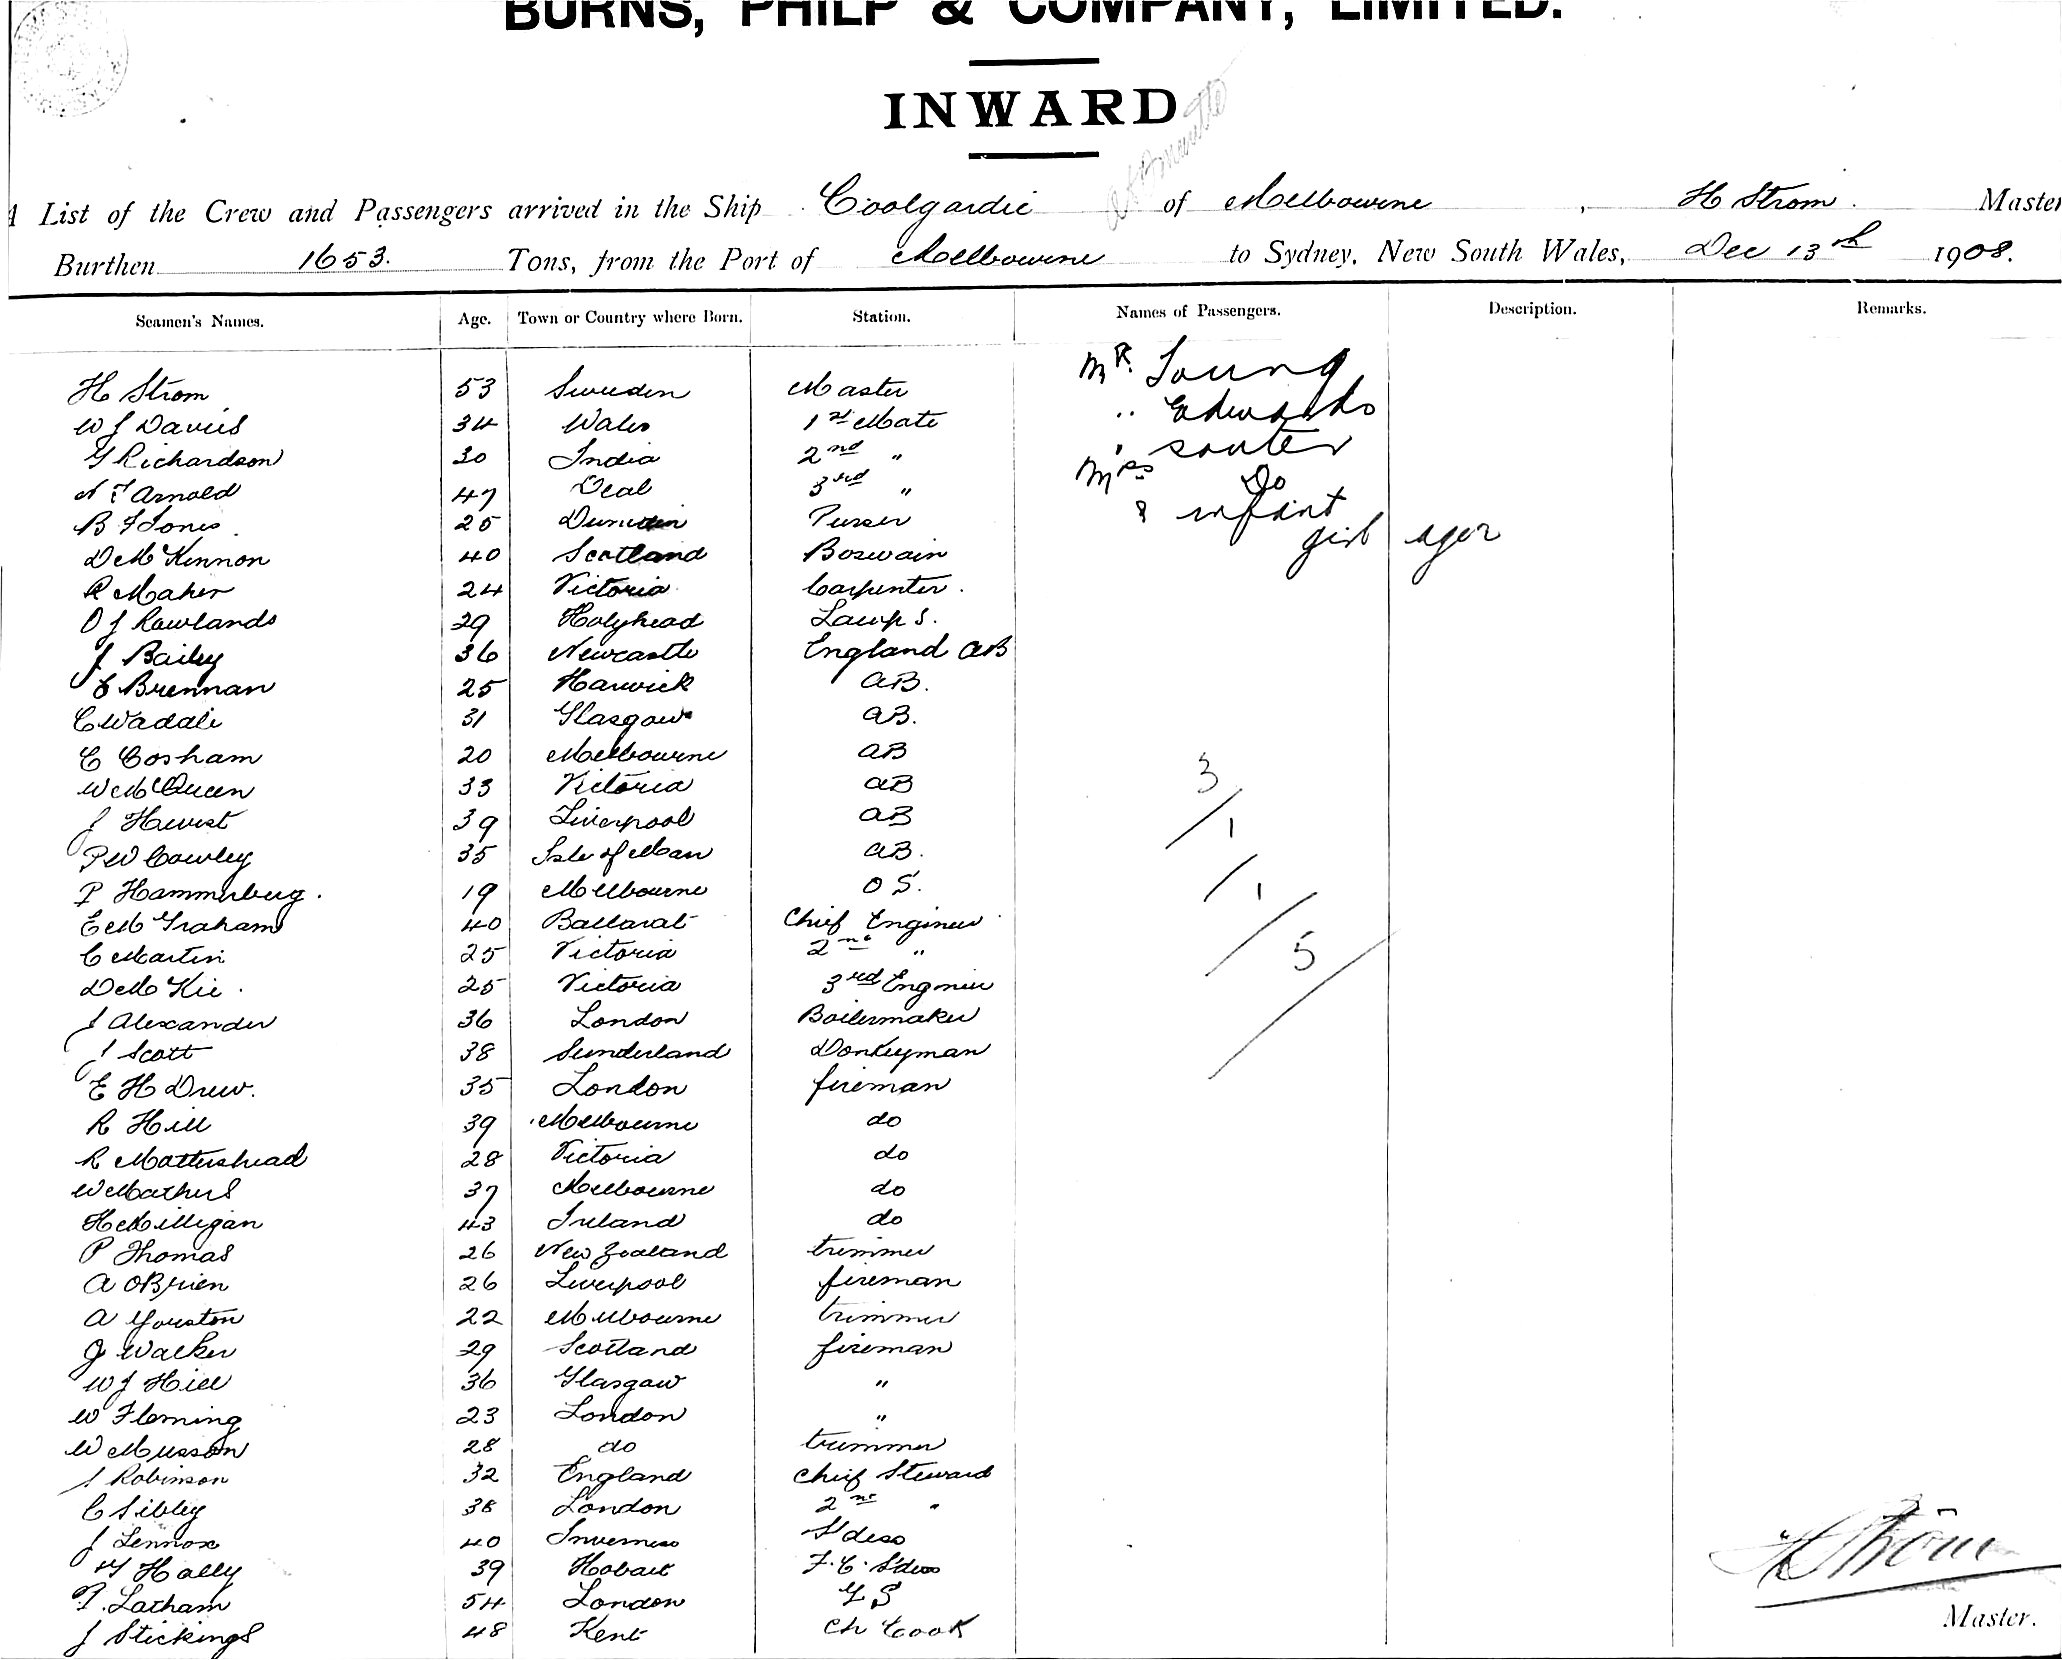 BURNS, PHILP & COMPANY, LIMITED.
INWARD
A List of the Crew and Passengers arrived in the Ship Coolgardie of Melbourne, H Strom. Master
Burthen 1653. Tons, from the Port of Melbourne to Sydney, New South Wales, Dec 13th 1908.
Seamen's Names. Age. Town or Country where Born. Station. Names of Passengers. Description. Remarks.
H Strom 53 Sweden Master Mr. Young
W J Davies 34 Wales 1st Mate " Edwards
G Richardson 30 India 2nd " " Souter
N T Arnold 47 Deal 3rd " Mrs Do
B F Jones 25 Dunedin Purser & infant
D McKinnon 40 Scotland Boswain girl
R Maher 24 Victoria Carpenter.
O J Rowlands 29 Holyhead Lamps.
J Bailey 36 Newcastle England AB
C Brennan 25 Harwick AB.
C Waddle 31 Glasgow AB.
C Cosham 20 Melbourne AB
W McQueen 33 Victoria AB 3
J Hewst 39 Liverpool AB / 1
P W Cowley 35 Isle of Man AB.
P Hammerberg. 19 Melbourne O S. / 1
E McGraham 40 Ballarat Chief Engineer /
C Martin 25 Victoria 2nd " 5
D McKie. 25 Victoria 3rd Engineer /
J Alexander 36 London Boilermaker
J Scott 38 Sunderland Donkeyman
E H Drew. 35 London fireman
R Hill 39 Melbourne do
R Mottershead 28 Victoria do
W Mathers 37 Melbourne do
H Milligan 43 Ireland do
P Thomas 26 New Zealand trimmer
A OBrien 26 Liverpool fireman
A Yourston 22 Melbourne trimmer
J Walker 29 Scotland fireman
W J Hill 36 Glasgow "
W Fleming 23 London "
W Musson 28 do trimmer
J Robinson 32 England Chief Steward
C Sibley 38 London 2nd "
J Lennox 40 Inverness S'dess
H Hally 39 Hobart F.C. S'dess
P. Latham 54 London G S
J Stickings 48 Kent Ch Cook
H Ström
Master.